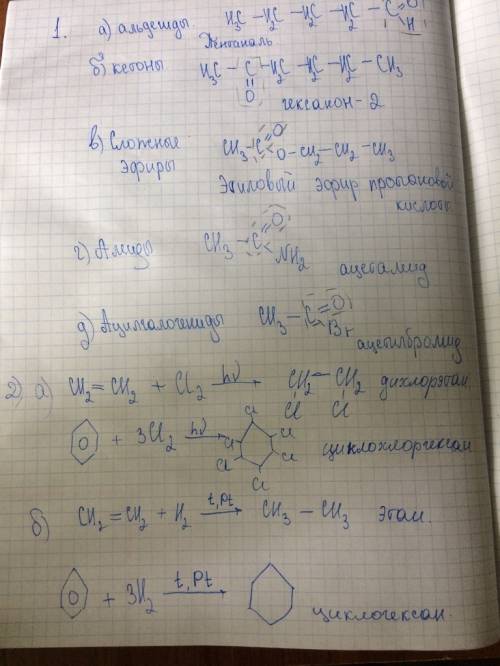 1. а) альдегиды. H₃C – H₂C – H₂C – H₂C – C =O H
Пентаналь
б) кетоны H₃C – C – H₂C – H₂C – H₂C – CH₃
O
гексанон-2
в) Сложные эфиры CH₃ – C =O O – CH₂ – CH₂ – CH₃
Этиловый эфир пропановой
кислоты
г) Амиды CH₃ – C =O NH₂
ацетамид
д) Ацилгалогениды CH₃ – C =O Br
ацетилбромид
2) а) CH₂ = CH₂ + Cl₂ hν → CH₂ – CH₂ дихлорэтан
Cl Cl
+ 3Cl₂ hν → Cl Cl Cl Cl Cl Cl циклохлоргексан
б) CH₂ = CH₂ + H₂ t, Pt → CH₃ – CH₃ этан.
+ 3H₂ t, Pt → циклогексан.